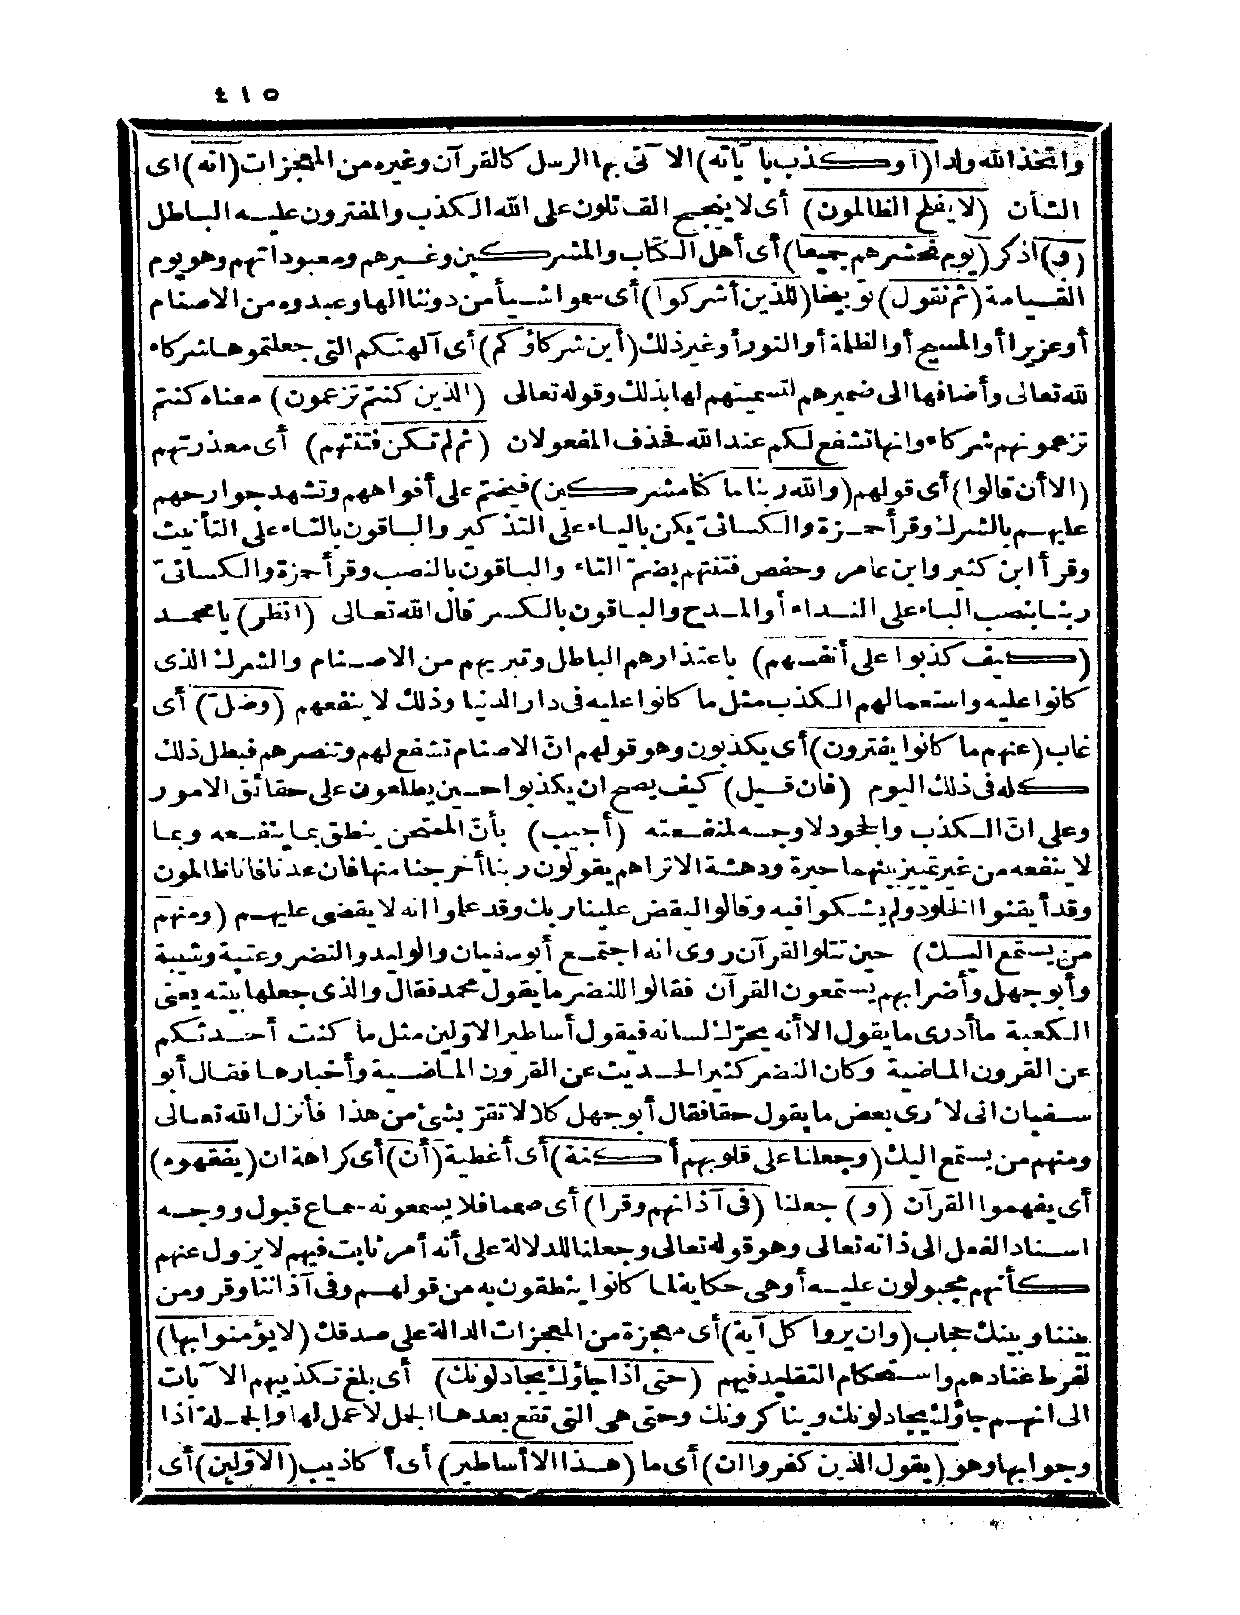 ٤١٥
واتخذ الله ولدا (أو كذب بآياته) الآتى بها الرسل كالقرآن وغيره من المعجزات (انه) أى
الشأن (لا يفلح الظالمون) أى لا ينجح القائلون على الله الكذب والمفترون عليه الباطل
(و) اذكر (يوم نحشرهم جميعا) أى أهل الكتاب والمشركين وغيرهم ومعبوداتهم وهو يوم
القيامة (ثم نقول) توبيخا (للذين أشركوا) أى سموا شيأ من دوننا الها وعبدوه من الاصنام
أو عزيرا أو المسيح أو الظلمة أو النور أو غير ذلك (أين شركاؤكم) أى آلهتكم التى جعلتموها شركاء
لله تعالى وأضافها الى ضميرهم لتسميتهم لها بذلك وقوله تعالى (الذين كنتم تزعمون) معناه كنتم
تزعمونهم شركاء وانها تشفع لكم عند الله فحذف المفعولان (ثم لم تكن فتنتهم) أى معذرتهم
(الا أن قالوا) أى قولهم (والله ربنا ما كنا مشركين) فيختم على أفواههم وتشهد جوارحهم
عليهم بالشرك وقرأ حمزة والكسائىّ يكن بالياء على التذكير والباقون بالتاء على التأنيث
وقرأ ابن كثير وابن عامر وحفص فتنتهم بضمّ التاء والباقون بالنصب وقرأ حمزة والكسائىّ
ربنا بنصب الباء على النداء أو المدح والباقون بالكسر قال الله تعالى (انظر) يا محمد
(كيف كذبوا على أنفسهم) باعتذارهم الباطل وتبريهم من الاصنام والشرك الذى
كانوا عليه واستعمالهم الكذب مثل ما كانوا عليه فى دار الدنيا وذلك لا ينفعهم (وضلّ) أى
غاب (عنهم ما كانوا يفترون) أى يكذبون وهو قولهم انّ الاصنام تشفع لهم وتنصرهم فبطل ذلك
كله فى ذلك اليوم (فان قيل) كيف يصح ان يكذبوا حين يطلعون على حقائق الامور
وعلى انّ الكذب والجحود لا وجه لمنفعته (أجيب) بأنّ الممتحن ينطق بما ينفعه وبما
لا ينفعه من غير تمييز بينهما حيرة ودهشة الا تراهم يقولون ربنا أخرجنا منها فان عدنا فانا ظالمون
وقد أيقنوا الخلود ولم يشكوا فيه وقالوا ليقض علينا ربك وقد علموا انه لا يقضى عليهم (ومنهم
من يستمع اليك) حين تتلوا القرآن روى انه اجتمع أبو سفيان والوليد والنضر وعتبة وشيبة
وأبو جهل وأضرابهم يستمعون القرآن فقالوا للنضر ما يقول محمد فقال والذى جعلها بيته يعنى
الكعبة ما أدرى ما يقول الا أنه يحرّك لسانه فيقول أساطير الاوّلين مثل ما كنت أحدثكم
عن القرون الماضية وكان النضر كثير الحديث عن القرون الماضية وأخبارها فقال أبو
سفيان انى لأرى بعض ما يقول حقا فقال أبو جهل كلا لا تقرّ بشئ من هذا فأنزل الله تعالى
ومنهم من يستمع اليك (وجعلنا على قلوبهم أكنة) أى أغطية (أن) أى كراهة ان (يفقهوه)
أى يفهموا القرآن (و) جعلنا (فى آذانهم وقرا) أى صمما فلا يسمعونه سماع قبول ووجه
اسناد الفعل الى ذاته تعالى وهو قوله تعالى وجعلنا للدلالة على أنه أمر ثابت فيهم لا يزول عنهم
كأنهم مجبولون عليه أو هى حكاية لما كانوا ينطقون به من قولهم وفى آذاننا وقر ومن
بيننا وبينك حجاب (وان يروا كل آية) أى معجزة من المعجزات الدالة على صدقك (لا يؤمنوا بها)
لفرط عنادهم واستحكام التقليد فيهم (حتى اذا جاؤك يجادلونك) أى بلغ تكذيبهم الآيات
الى انهم جاؤك يجادلونك ويناكرونك وحتى هى التى تقع بعدها الجمل لا عمل لها والجملة اذا
وجوابها وهو (يقول الذين كفروا ان) أى ما (هذا الا أساطير) أى أكاذيب (الاوّلين) أى